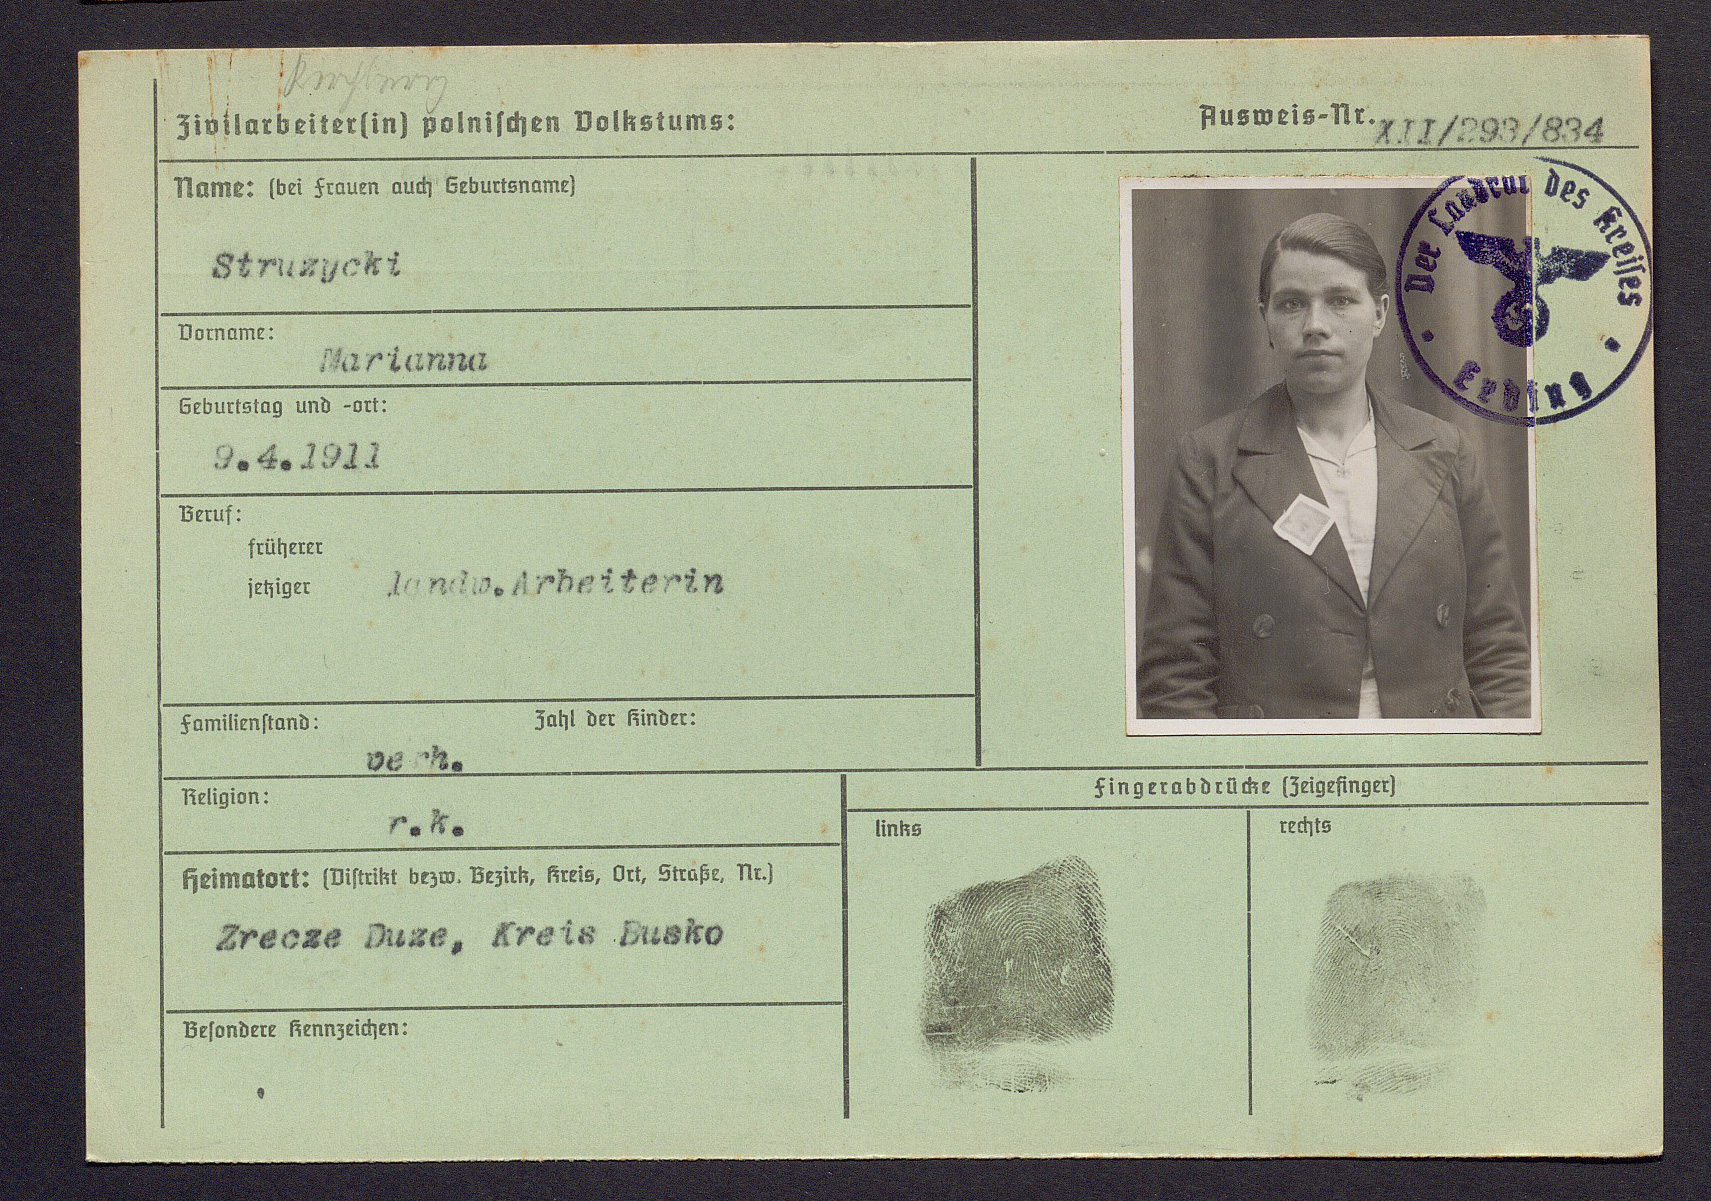 Zivilarbeiter(in) polnischen Volkstums:
Ausweis-Nr. XII/293/834
Name: (bei Frauen auch Geburtsname)
Struzycki
Vorname:
Marianna
Geburtstag und -ort:
9.4.1911
Beruf:
früherer
jetziger landw.Arbeiterin
Familienstand: Zahl der Kinder:
verh.
Religion:
r.k.
Heimatort: (Distrikt bezw. Bezirk, Kreis, Ort, Straße, Nr.)
Zrecze Duze, Kreis Busko
Besondere Kennzeichen:
Der Landrat des Kreises
Erding
Fingerabdrücke (Zeigefinger)
links
rechts